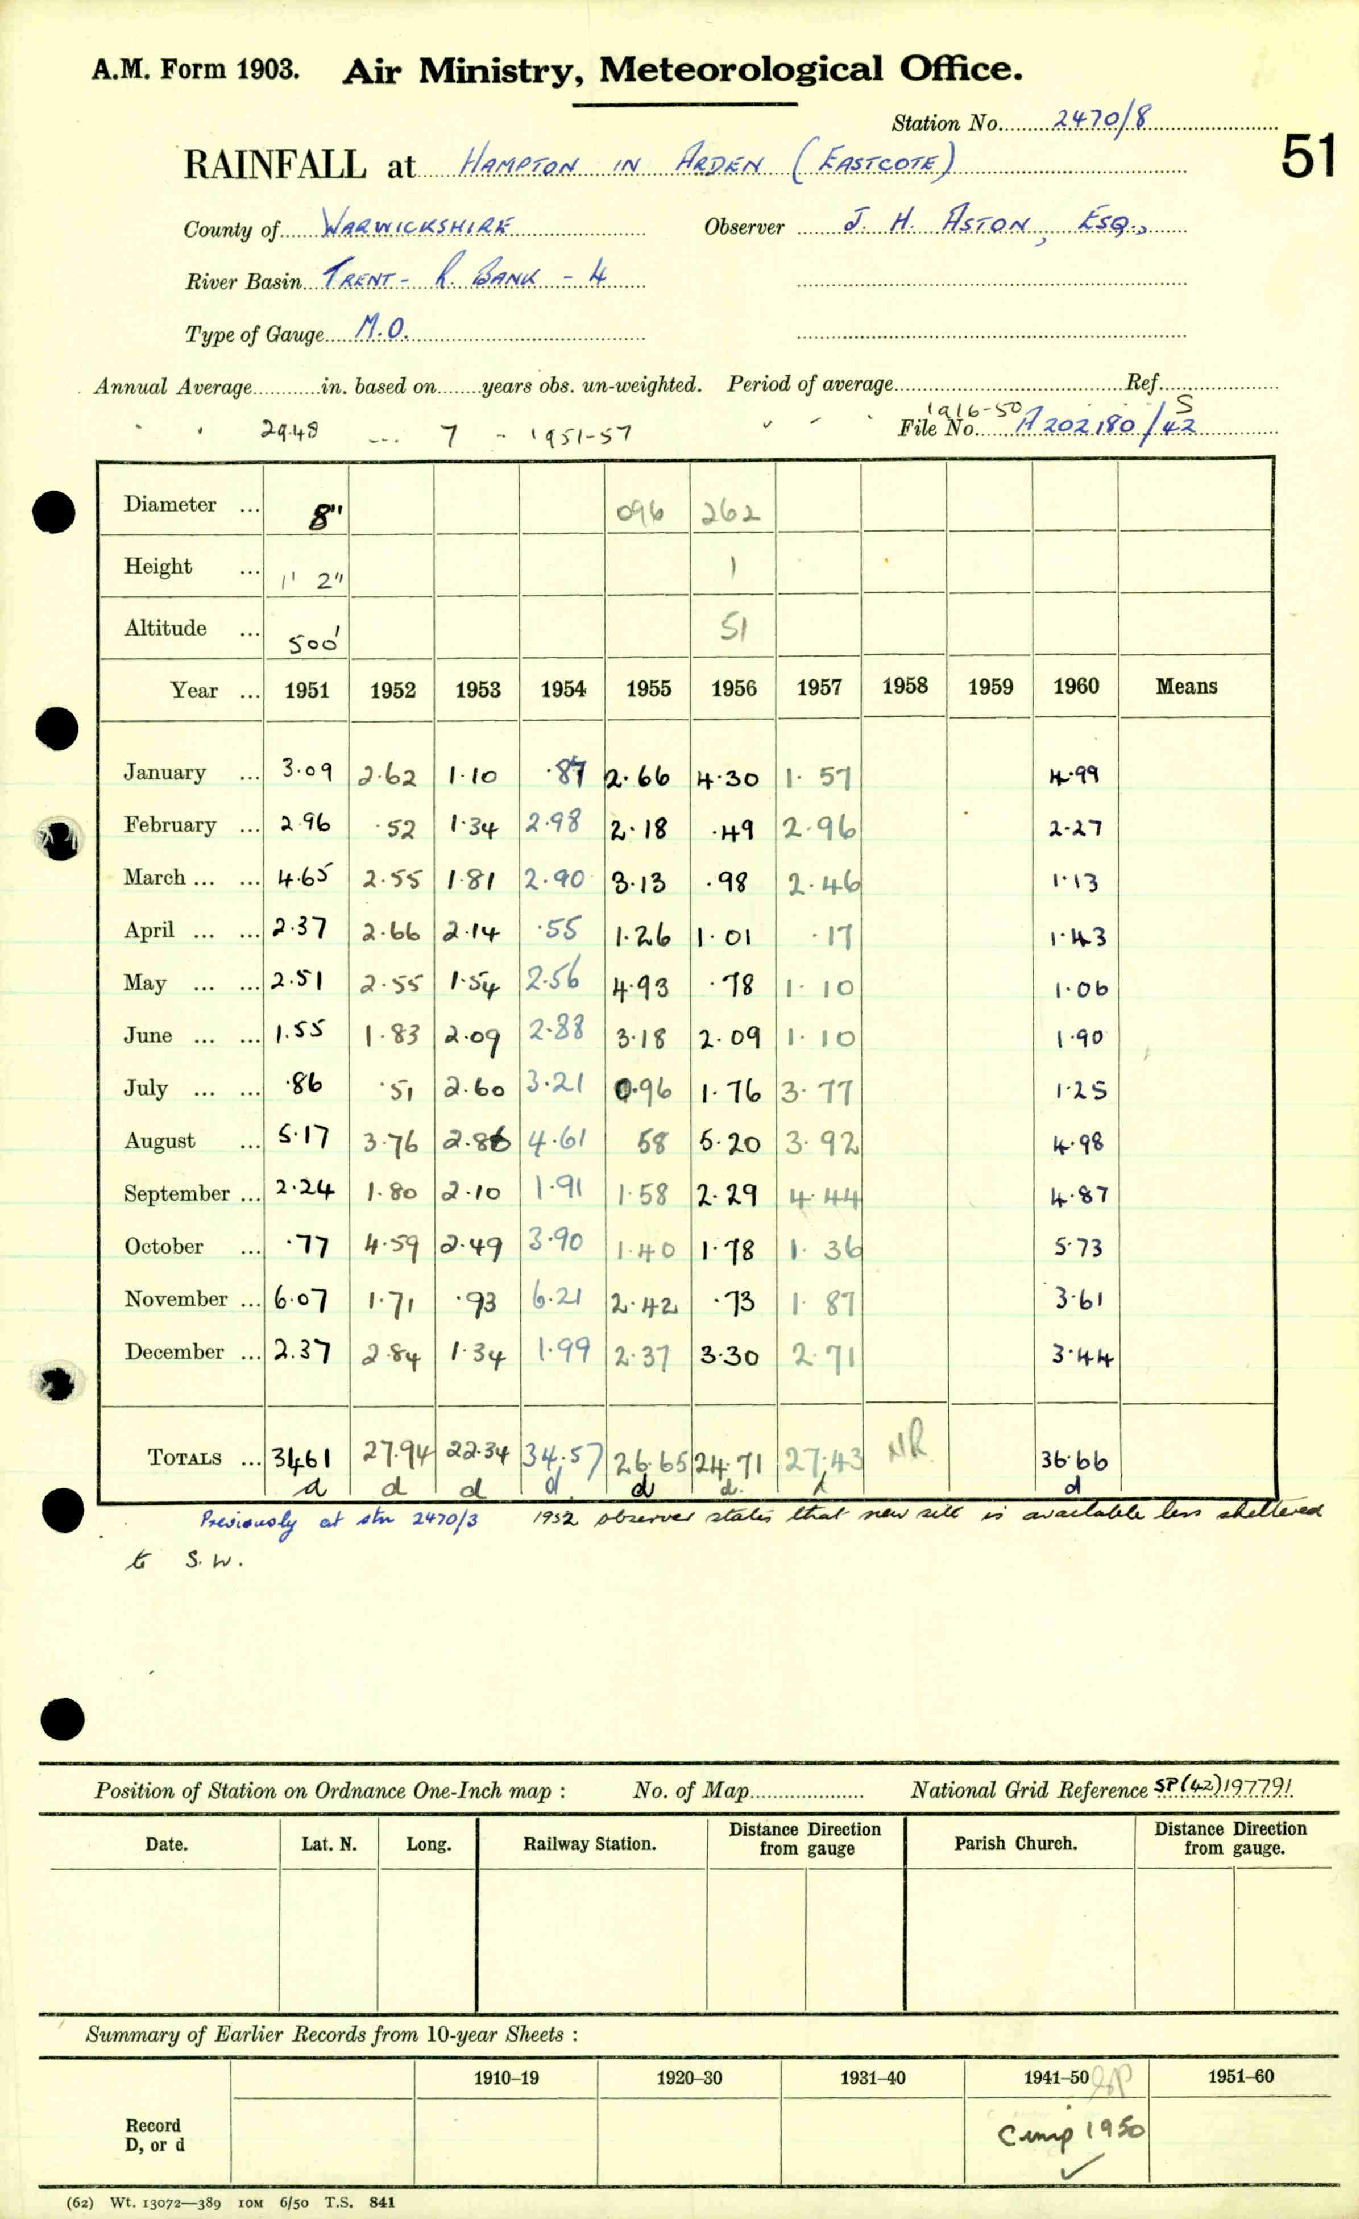 A.M. Form 1903. Air Ministry, Meteorological Office.
Station No. 2470/8
51
RAINFALL at HAMPTON IN ARDEN (EASTCOTE)
County of WARWICKSHIRE Observer J. H. ASTON, ESQ.,
River Basin TRENT - R. BANK - 4
Type of Gauge M.O.
Annual Average in. based on years obs. un-weighted. Period of average Ref.
1916-50
29.48 7 - 1951-57 File No. A202180/42 S
Diameter ... 8" 096 262
Height ... 1' 2" 1
Altitude ... 500' 51
Year ... 1951 1952 1953 1954 1955 1956 1957 1958 1959 1960 Means
January ... 3.09 2.62 1.10 .87 2.66 4.30 1.57 4.99
February ... 2.96 .52 1.34 2.98 2.18 .49 2.96 2.27
March ... ... 4.65 2.55 1.81 2.90 3.13 .98 2.46 1.13
April ... ... 2.37 2.66 2.14 .55 1.26 1.01 .17 1.43
May ... ... 2.51 2.55 1.54 2.56 4.93 .78 1.10 1.06
June ... ... 1.55 1.83 2.09 2.88 3.18 2.09 1.10 1.90
July ... ... .86 .51 2.60 3.21 0.96 1.76 3.77 1.25
August ... 5.17 3.76 2.86 4.61 58 5.20 3.92 4.98
September ... 2.24 1.80 2.10 1.91 1.58 2.29 4.44 4.87
October ... .77 4.59 2.49 3.90 1.40 1.78 1.36 5.73
November ... 6.07 1.71 .93 6.21 2.42 .73 1.87 3.61
December ... 2.37 2.84 1.34 1.99 2.37 3.30 2.71 3.44
TOTALS ... 34.61 27.94 22.34 34.57 26.65 24.71 27.43 NR 36.66
d d d d d d d d
Previously at stn 2470/3 1952 observer states that new site is available less sheltered
to S.W.
Position of Station on Ordnance One-Inch map : No. of Map National Grid Reference SP(42)197791
Date. Lat. N. Long. Railway Station. Distance from gauge Direction Parish Church. Distance from gauge. Direction
Summary of Earlier Records from 10-year Sheets :
1910-19 1920-30 1931-40 1941-50 1951-60
Record
D, or d
1950
(62) Wt. 13072—389 10M 6/50 T.S. 841